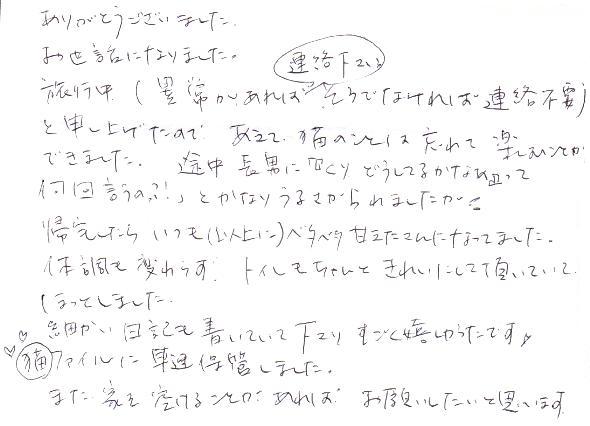 ありがとうございました。
お世話になりました。
連絡下さい
旅行中（異常があれば そうでなければ連絡不要）
と申し上げたので あえて、猫のことは忘れて 楽しむことが
できました。 途中 長男に「くり どうしてるかな 」って
何回言うの?!」とかなりうるさがられましたが。
帰宅したら いつも(以上に)ベタベタ甘えたさんになってました。
体調も変わらず、トイレもちゃんときれいにして頂いていて
ほっとしました。
細かい日記も書いていて下さり すごく嬉しかったです♪
♡♡猫ファイルに早速保管しました。
また 家を空けることが あれば お願いしたいと思います